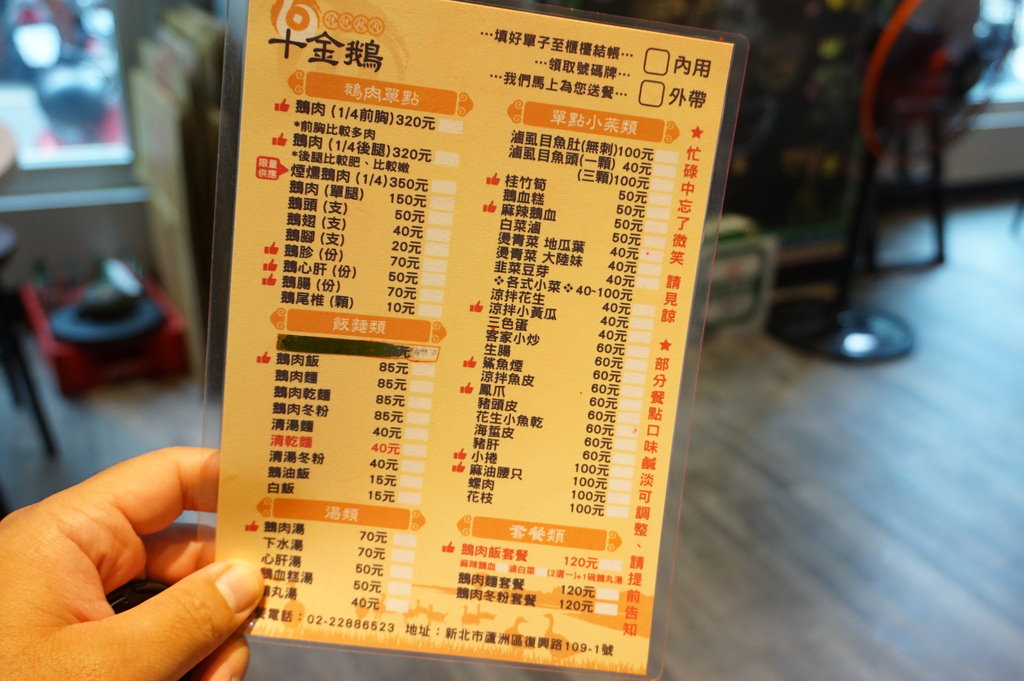 十金鵝
…填好單子至櫃檯結帳…
…領取號碼牌…
…我們馬上為您送餐…
內用
外帶
鵝肉單點
鵝肉 (1/4前胸) 320元
*前胸比較多肉
鵝肉 (1/4後腿) 320元
*後腿比較肥、比較嫩
限量供應
煙燻鵝肉 (1/4) 350元
鵝肉 (單腿) 150元
鵝頭 (支) 50元
鵝翅 (支) 40元
鵝腳 (支) 20元
鵝胗 (份) 70元
鵝心肝 (份) 50元
鵝腸 (份) 70元
鵝尾椎 (顆) 10元
飯麵類
元
鵝肉飯 85元
鵝肉麵 85元
鵝肉乾麵 85元
鵝肉冬粉 85元
清湯麵 40元
清乾麵 40元
清湯冬粉 40元
鵝油飯 15元
白飯 15元
湯類
鵝肉湯 70元
下水湯 70元
心肝湯 50元
鵝血糕湯 50元
丸湯 40元
單點小菜類
滷虱目魚肚(無刺) 100元
滷虱目魚頭 (一顆) 40元
(三顆) 100元
桂竹筍 50元
鵝血糕 50元
麻辣鵝血 50元
白菜滷 50元
燙青菜 地瓜葉 40元
燙青菜 大陸妹 40元
韭菜豆芽 40元
❖各式小菜❖ 40~100元
涼拌花生 40元
涼拌小黃瓜 40元
三色蛋 40元
客家小炒 60元
生腸 60元
鯊魚煙 60元
涼拌魚皮 60元
鳳爪 60元
豬頭皮 60元
花生小魚乾 60元
海蜇皮 60元
豬肝 60元
小捲 100元
麻油腰只 100元
螺肉 100元
花枝 100元
套餐類
鵝肉飯套餐 120元
麻辣鵝血 滷白菜 (2選一)+1碗鵝丸湯
鵝肉麵套餐 120元
鵝肉冬粉套餐 120元
★忙碌中忘了微笑 請見諒 ★部分餐點口味鹹淡可調整、請提前告知
電話：02-22886523 地址：新北市蘆洲區復興路109-1號